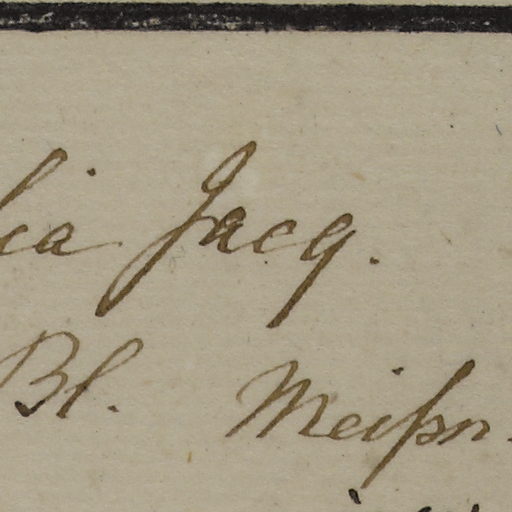 lia Jacq.
Bl. Meißn.